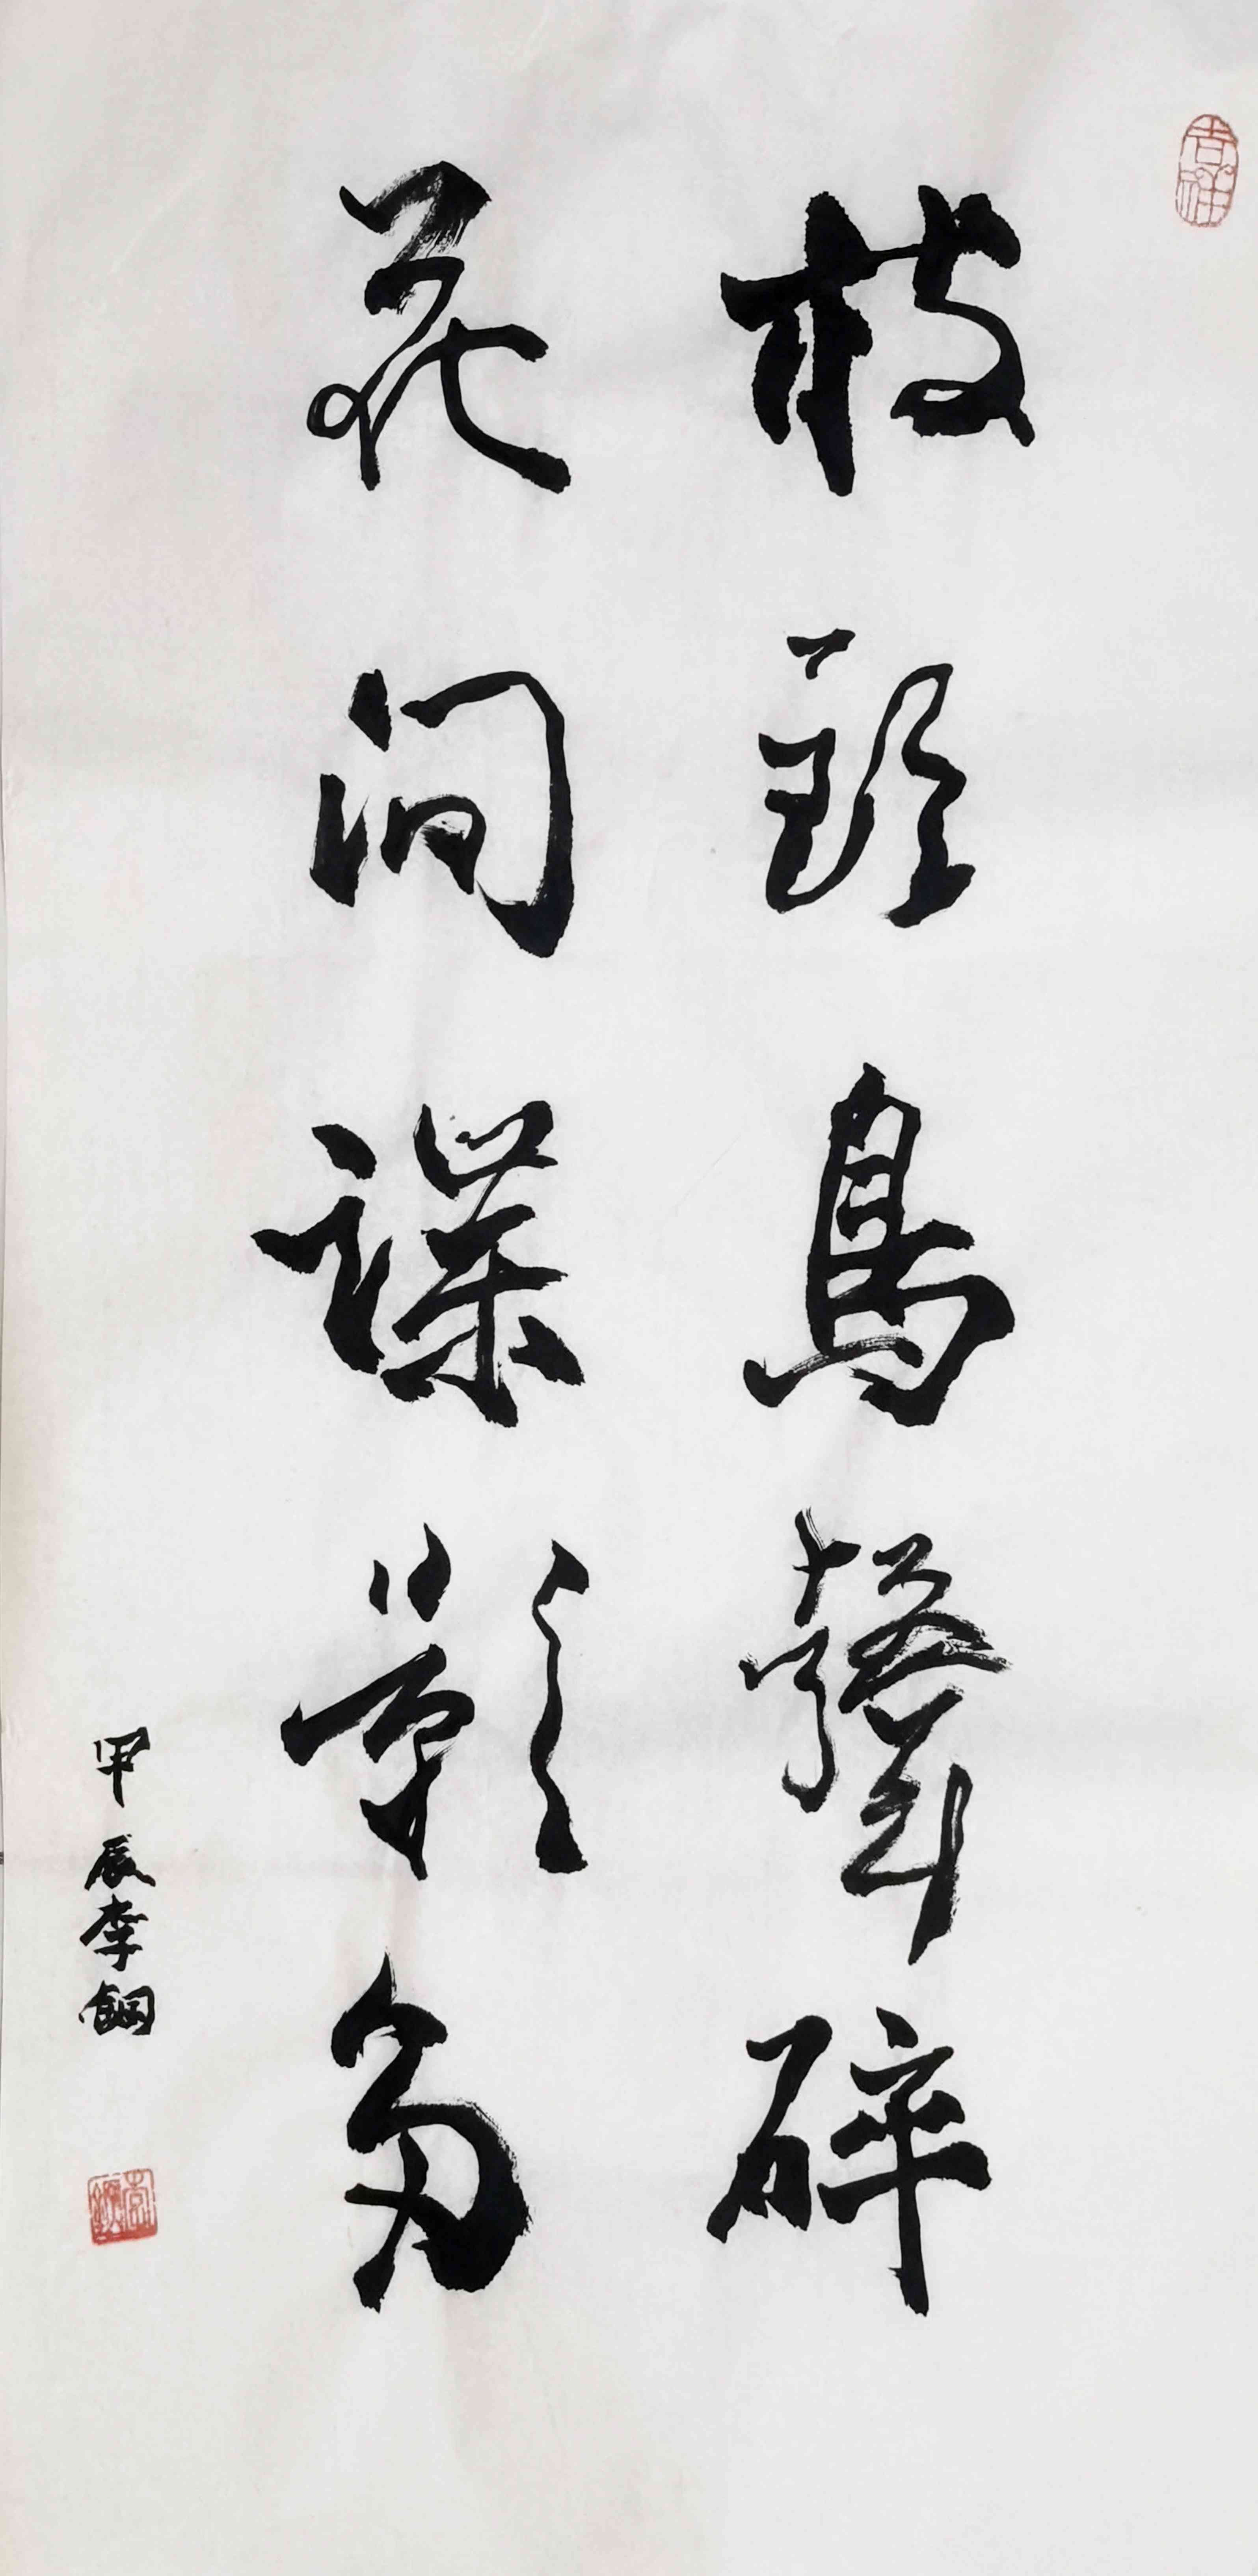 枝頭鳥聲碎
花間蝶影多
甲辰李鋼
吉祥